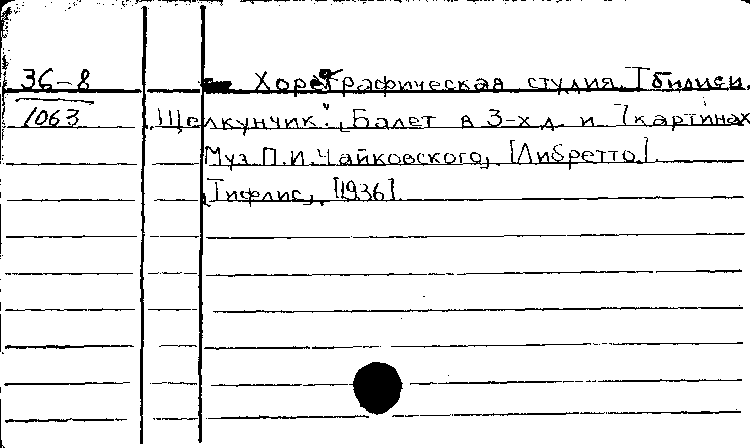 36-8
1063
Хореографическая студия. Тбилиси.
"Щелкунчик". Балет в 3-х д. и 7 картинах
Муз. П.И. Чайковского, [Либретто.]
Тифлис, [1936].